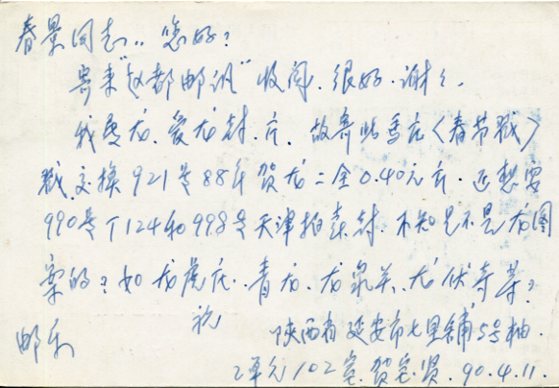 春景同志:您好!
寄来"赵都邮讯"收阅.很好.谢々.
我属龙.爱龙封.片.故寄此香片《春节戳》
戳.交换921号88年贺龙二全0.40元片.还想要
990号T124和998号天津拍卖封.不知是不是龙图
案的?如龙虎片.青龙.龙泉关.龙伏寺等?
祝
邮乐
陕西省延安市七里铺5号柚.
2单元102室.贺宝贤.90.4.11.